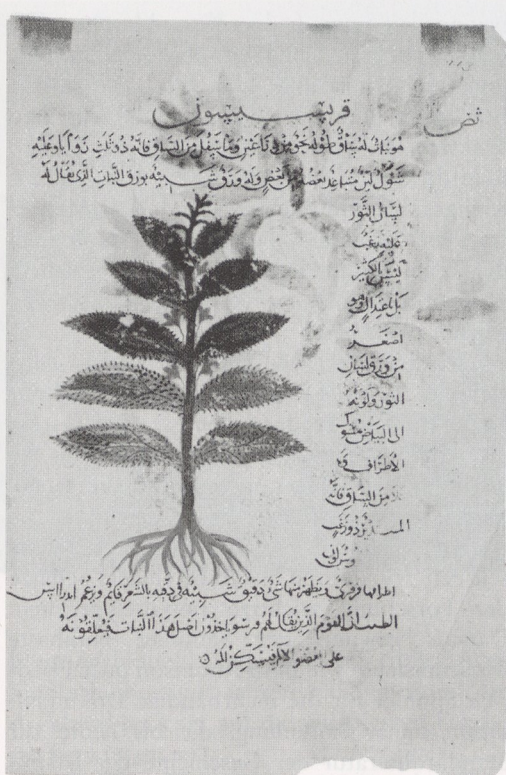 قرىسيون
هو نبات له ساق طوله نحو من ذراعين وما سفل من الساق فانه ذو ثلث زوايا وعليه
شوك لين متباعد بعضه من بعض وله ورق شبيه بورق النبات الذي يقال له
لسان الثور
عليه زغب
ليس بالكثير
بل باعتدال وهو
اصغر
من ورق لسان
الثور ولونه
الى البياض مشوك
الاطراف
من الساق فانه
زغب
اطرافها ويظهر منها شي دقيق شبيه في دقته بالشعر قائم وزعم اندراس
الطبيب ان القوم الذين يقال لهم ياخذون اصل هذا النبات فيعلقونه
على العضو الالم فيسكن المه